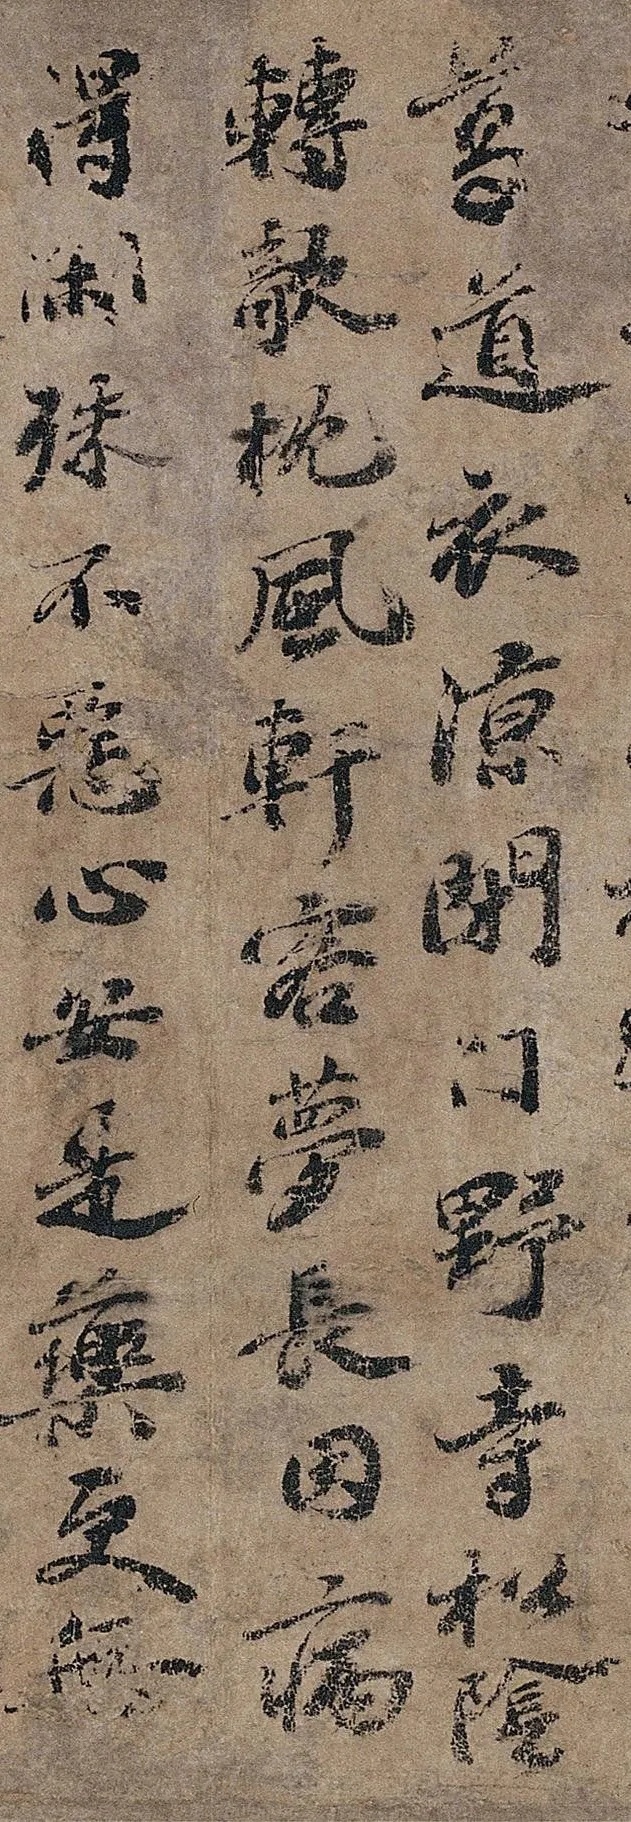 葛道衣涼閉門野寺松陰
轉欹枕風軒客夢長因病
得閑殊不惡心安是藥更無